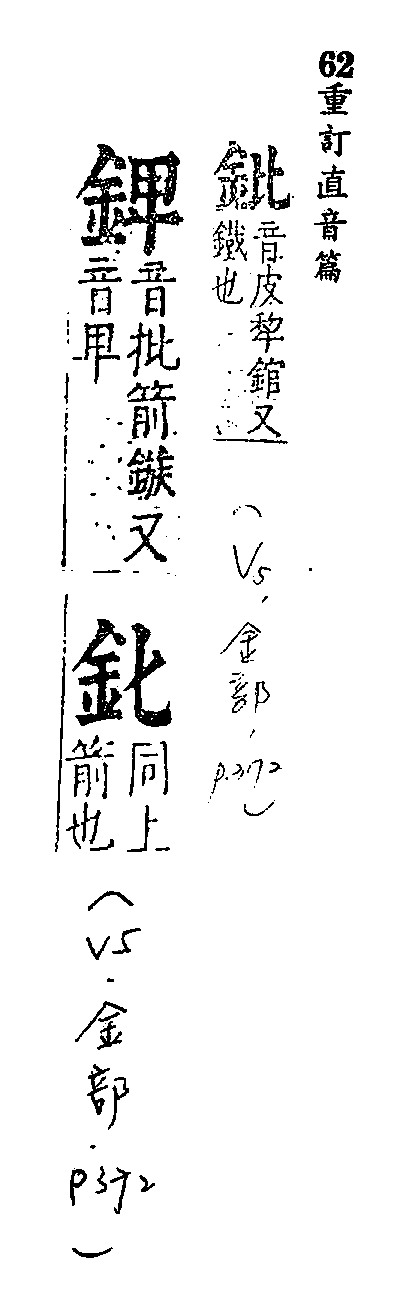 62重訂直音篇
鈚
音皮犂錧又
鐵也
(V5,金部,p.372)
鉀
音批箭鏃又
音甲
同上
箭也
(V5.金部.p372)